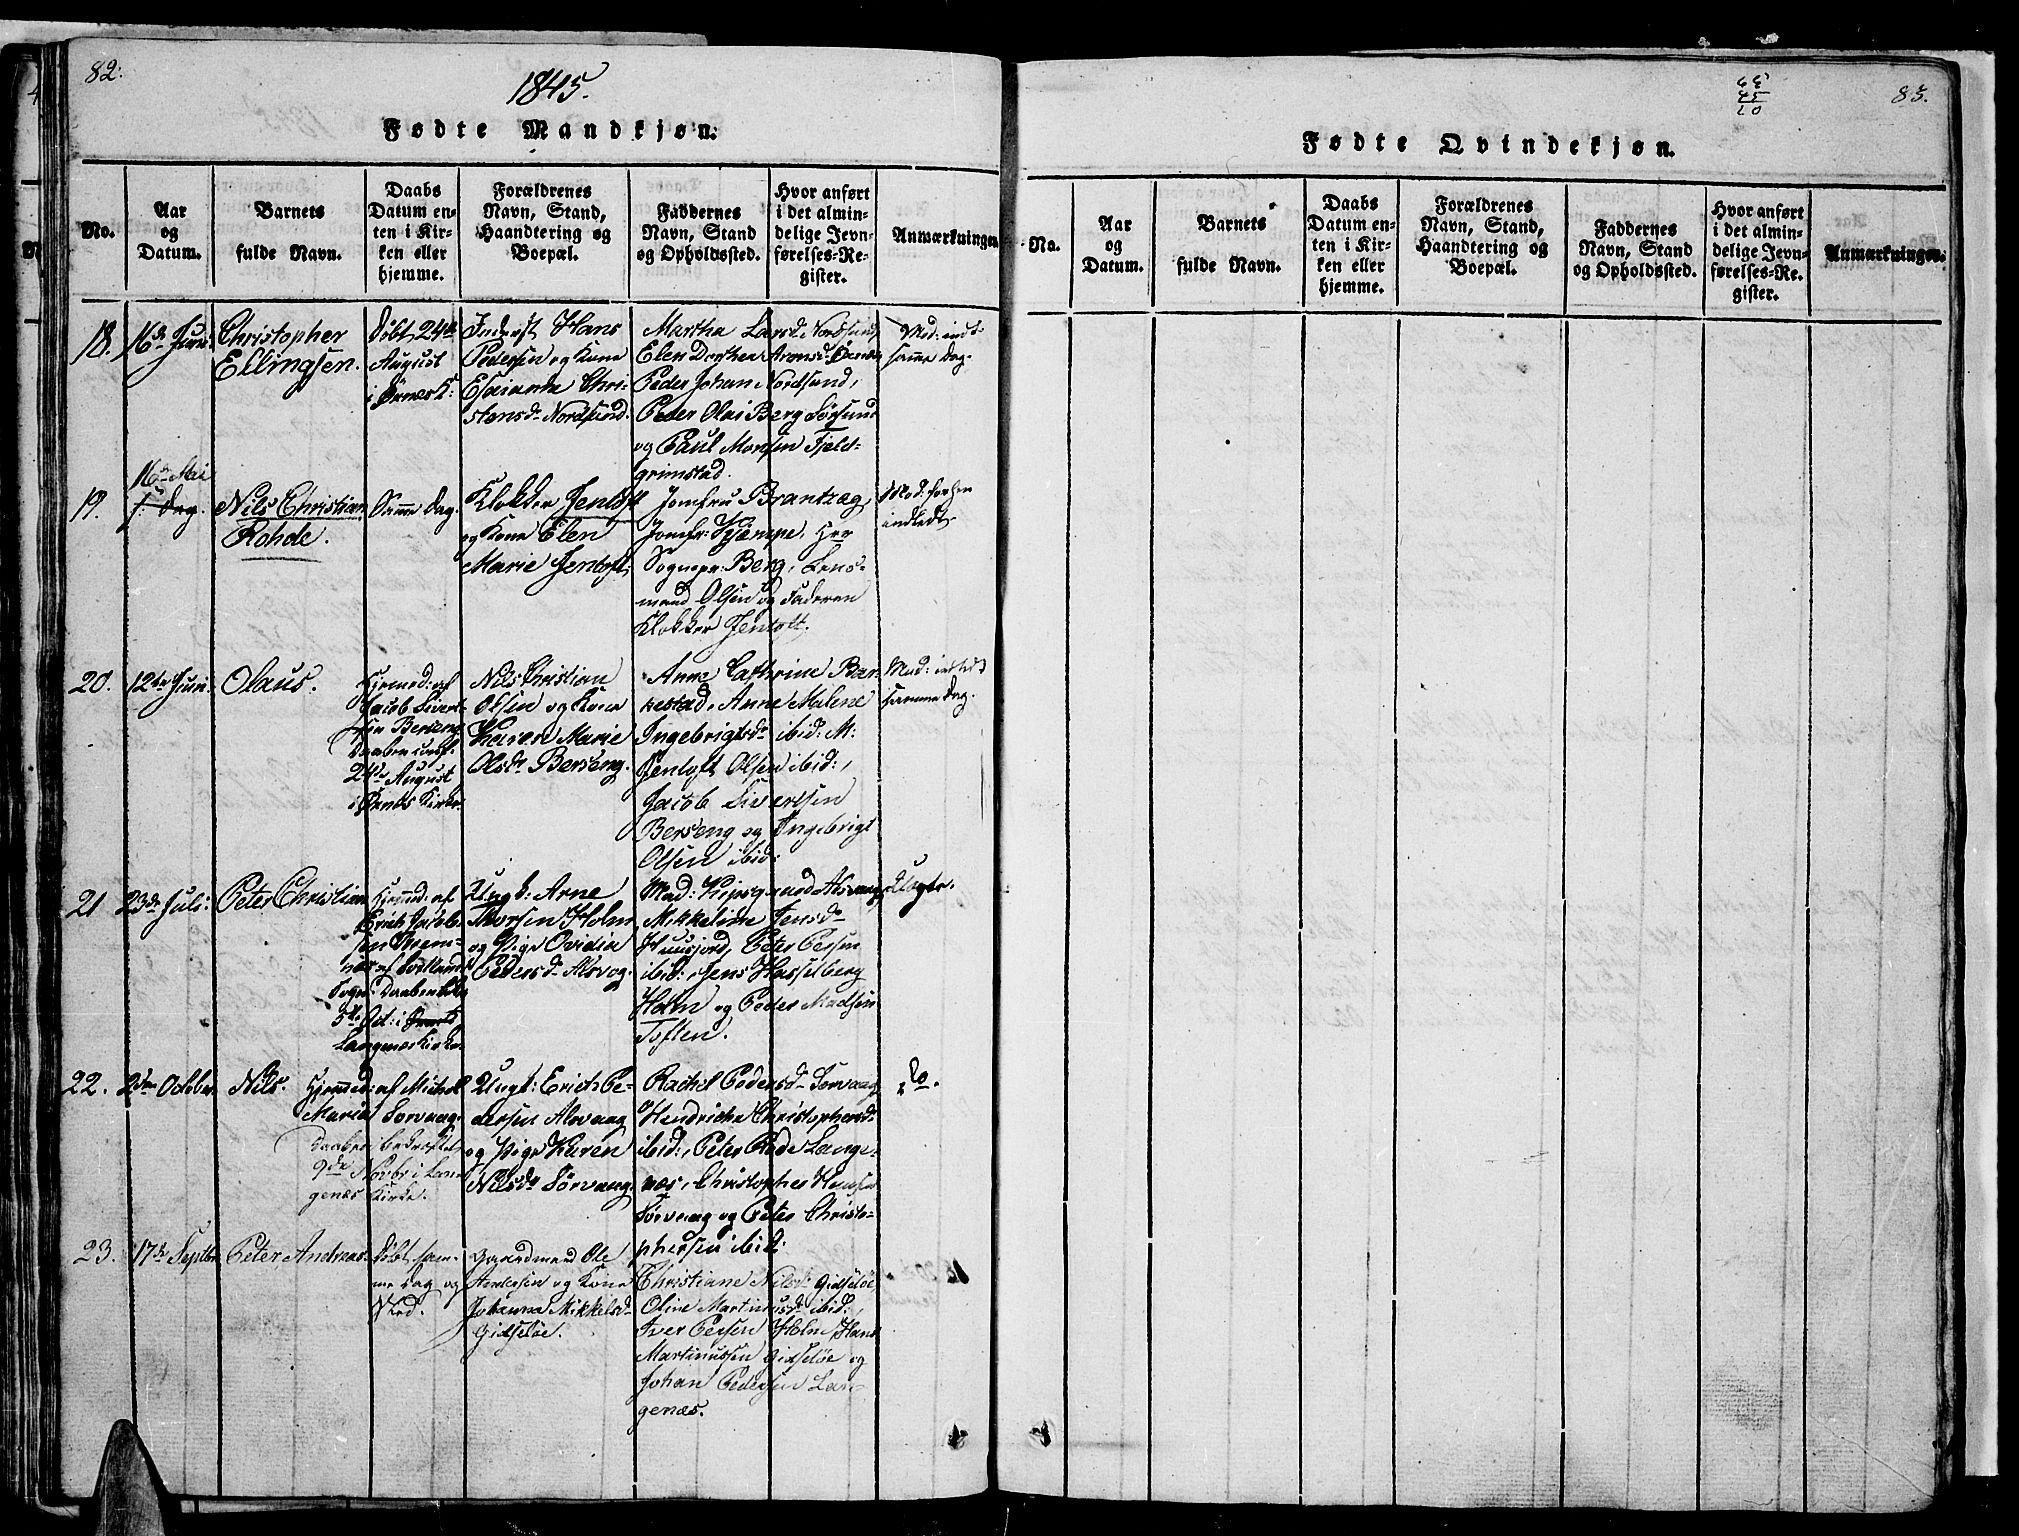 82.
1845.
Fødte Mandkjøn.
No.
Aar
og
Datum.
Barnets
fulde Navn.
Daabs
Datum en-
ten i Kir-
ken eller
hjemme.
Forældrenes
Navn, Stand,
Haandtering og
Boepæl.
Faddernes
Navn, Stand
og Opholdssted.
Hvor anført
i det almin-
delige Jevn-
førelses-Re-
gister.
Anmærkninger
18.
16de Juni
Christopher
Ellingsen.
Døbt 24de
August
i Ørnes K:
Inderst Hans
Pedersen og Kone
Esaianna Chri-
stensd. Nordsund.
Martha Larsd. Nordsund,
Elen Dorthea Aronsd.
Peder Johan Nordsund,
Peter Olai Berg Sørsund
og Paul Monsen Fjeld-
grimstad.
Mod: indl.
samme Dag.
19.
16de Mai
f. Dag.
Nils Christian
Rohde.
Samme Dag.
Klokker Jentoft
og Kone Elen
Marie Jentoft.
Jomfru Brantzæg,
Jomfr: Kjæmpe, Her
Sognepr: Berg, Lens-
mand Olsen og Faderen
Klokker Jentoft.
Mod: forhen
indledt.
20.
12te Juni.
Olaus.
Hjemmed: af
Jacob Sivert-
sen Berseng
Daaben
24de August
i Ørnes Kirke.
Nils Christian
Olsen og Kone
Karen Marie
Olsdr Berseng.
Anne Cathrine Bar-
kestad, Anne Malene
Ingebrigtsdr ibid: M:
Jentoft Olsen ibid:,
Jacob Sivertsen
Berseng og Ingebrigt
Olsen ibid:
Mod: indledt
samme Dag.
21
23de Juli:
Peter Christian
Hjemmed: af
Erich Jacob-
sen
Sogn: Daaben
5te Oct: i
Langenes Kirke.
Ungk: Arne
Thorsen Holm
og Pige Ovidia
Pedersdr Alsvog.
Mad: Alsvaag,
Mikkeline Jensdr
Huusjord, Peter Persen
ibid:, Jens Hasselberg
Holm og Peder Madsen
Toften.
Uægte.
22.
2den October
Nils.
Hjemmed: af Michel
Maria Sørvaag.
Daaben bekræftet
9de Novbr i Lan-
genæs Kirke.
Ungk: Erich Pe-
dersen Alsvaag
og Pige Karen
Nilsdr Sørvaag.
Rachel Pedersdr Sørvaag
Hendricha Christophersdr
ibid:, Peter Rode Lange-
næs, Christopher Hansen
Sørvaag og Peter Christo-
phersen ibid:
Do.
23.
17de Septbr
Peter Andreas.
Døbt sam-
me Dag og
Sted.
Gaardmand Ole
Andersen og Kone
Johanna Mikkelsdr
Gidseløe.
Christiane Nilsdr Gidseløe,
Oline Martinusdr ibid:,
Iver Persen Holm, Hans
Martinussen Gidseløe og
Johan Pedersen Lan-
genæs.
65
45
20
83.
Fødte Qvindekjøn.
No.
Aar
og
Datum.
Barnets
fulde Navn.
Daabs
Datum en-
ten i Kir-
ken eller
hjemme.
Forældrenes
Navn, Stand,
Haandtering og
Boepæl.
Faddernes
Navn, Stand
og Opholdssted.
Hvor anført
i det almin-
delige Jevn-
førelses-Re-
gister.
Anmærkninger.